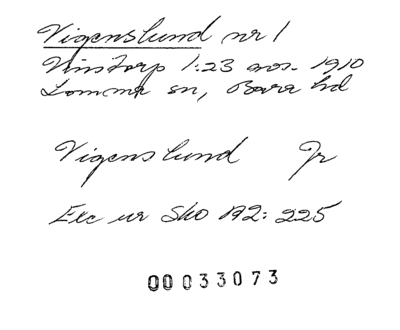 Vigenslund nr 1
Vinstorp 1:23 avs. 1910
Lomma sn, Bara hd
Vigenslund Jr
Exc ur Sko A2: 225
00033073